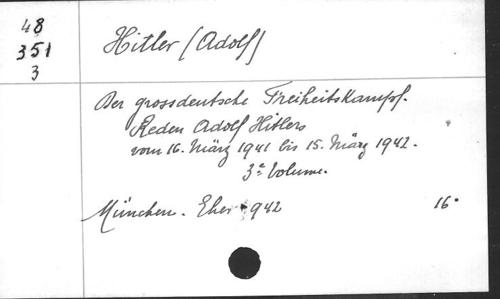 48
351
3
Hitler (Adolf)
Der grossdeutsche Freiheitskampf.
Reden Adolf Hitlers
vom 16. März 1941 bis 15. März 1942.
3e Volume.
München. Eher 1942
16°